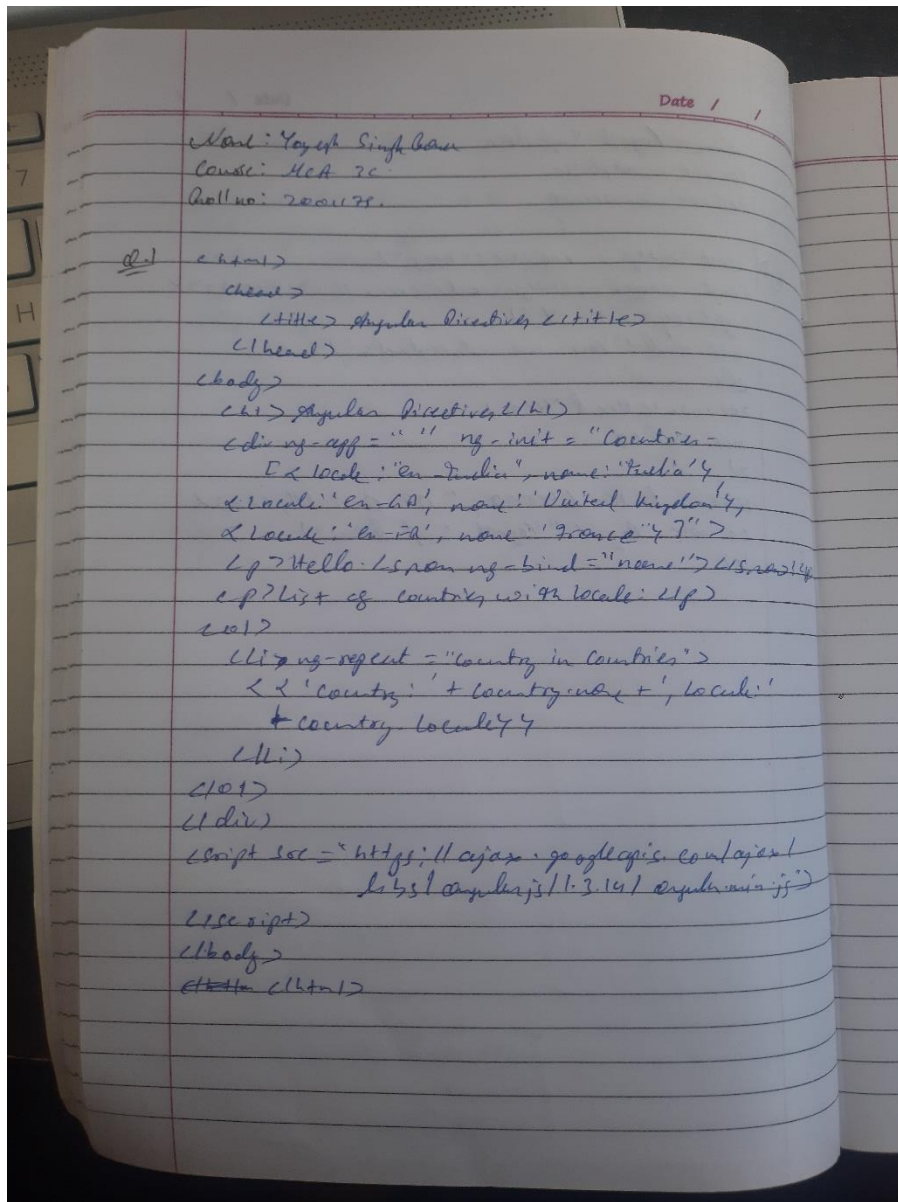 Date / /
Name: Yogesh Singh
Course: MCA 2C
Roll no:
Q.1 <html>
<head>
<title> Angular Directives </title>
</head>
<body>
<h1> Angular Directives </h1>
<div ng-app = " " ng-init = "Countries =
[{ locale: 'en-India', name: 'India' },
{ locale: 'en-GB', name: 'United Kingdom' },
{ locale: 'en-FR', name: 'France' } ] " >
<p> Hello <span ng-bind = "name"> </span> </p
<p> List of countries with locale: </p>
<ol>
<li> ng-repeat = "country in Countries">
{ { 'Country: ' + country.name + ', Locale: '
+ country.locale } }
</li>
</ol>
</div>
<script src = "https://ajax.googleapis.com/ajax/
libs/angularjs/1.3.14/angular.min.js">
</script>
</body>
</html>
7
H